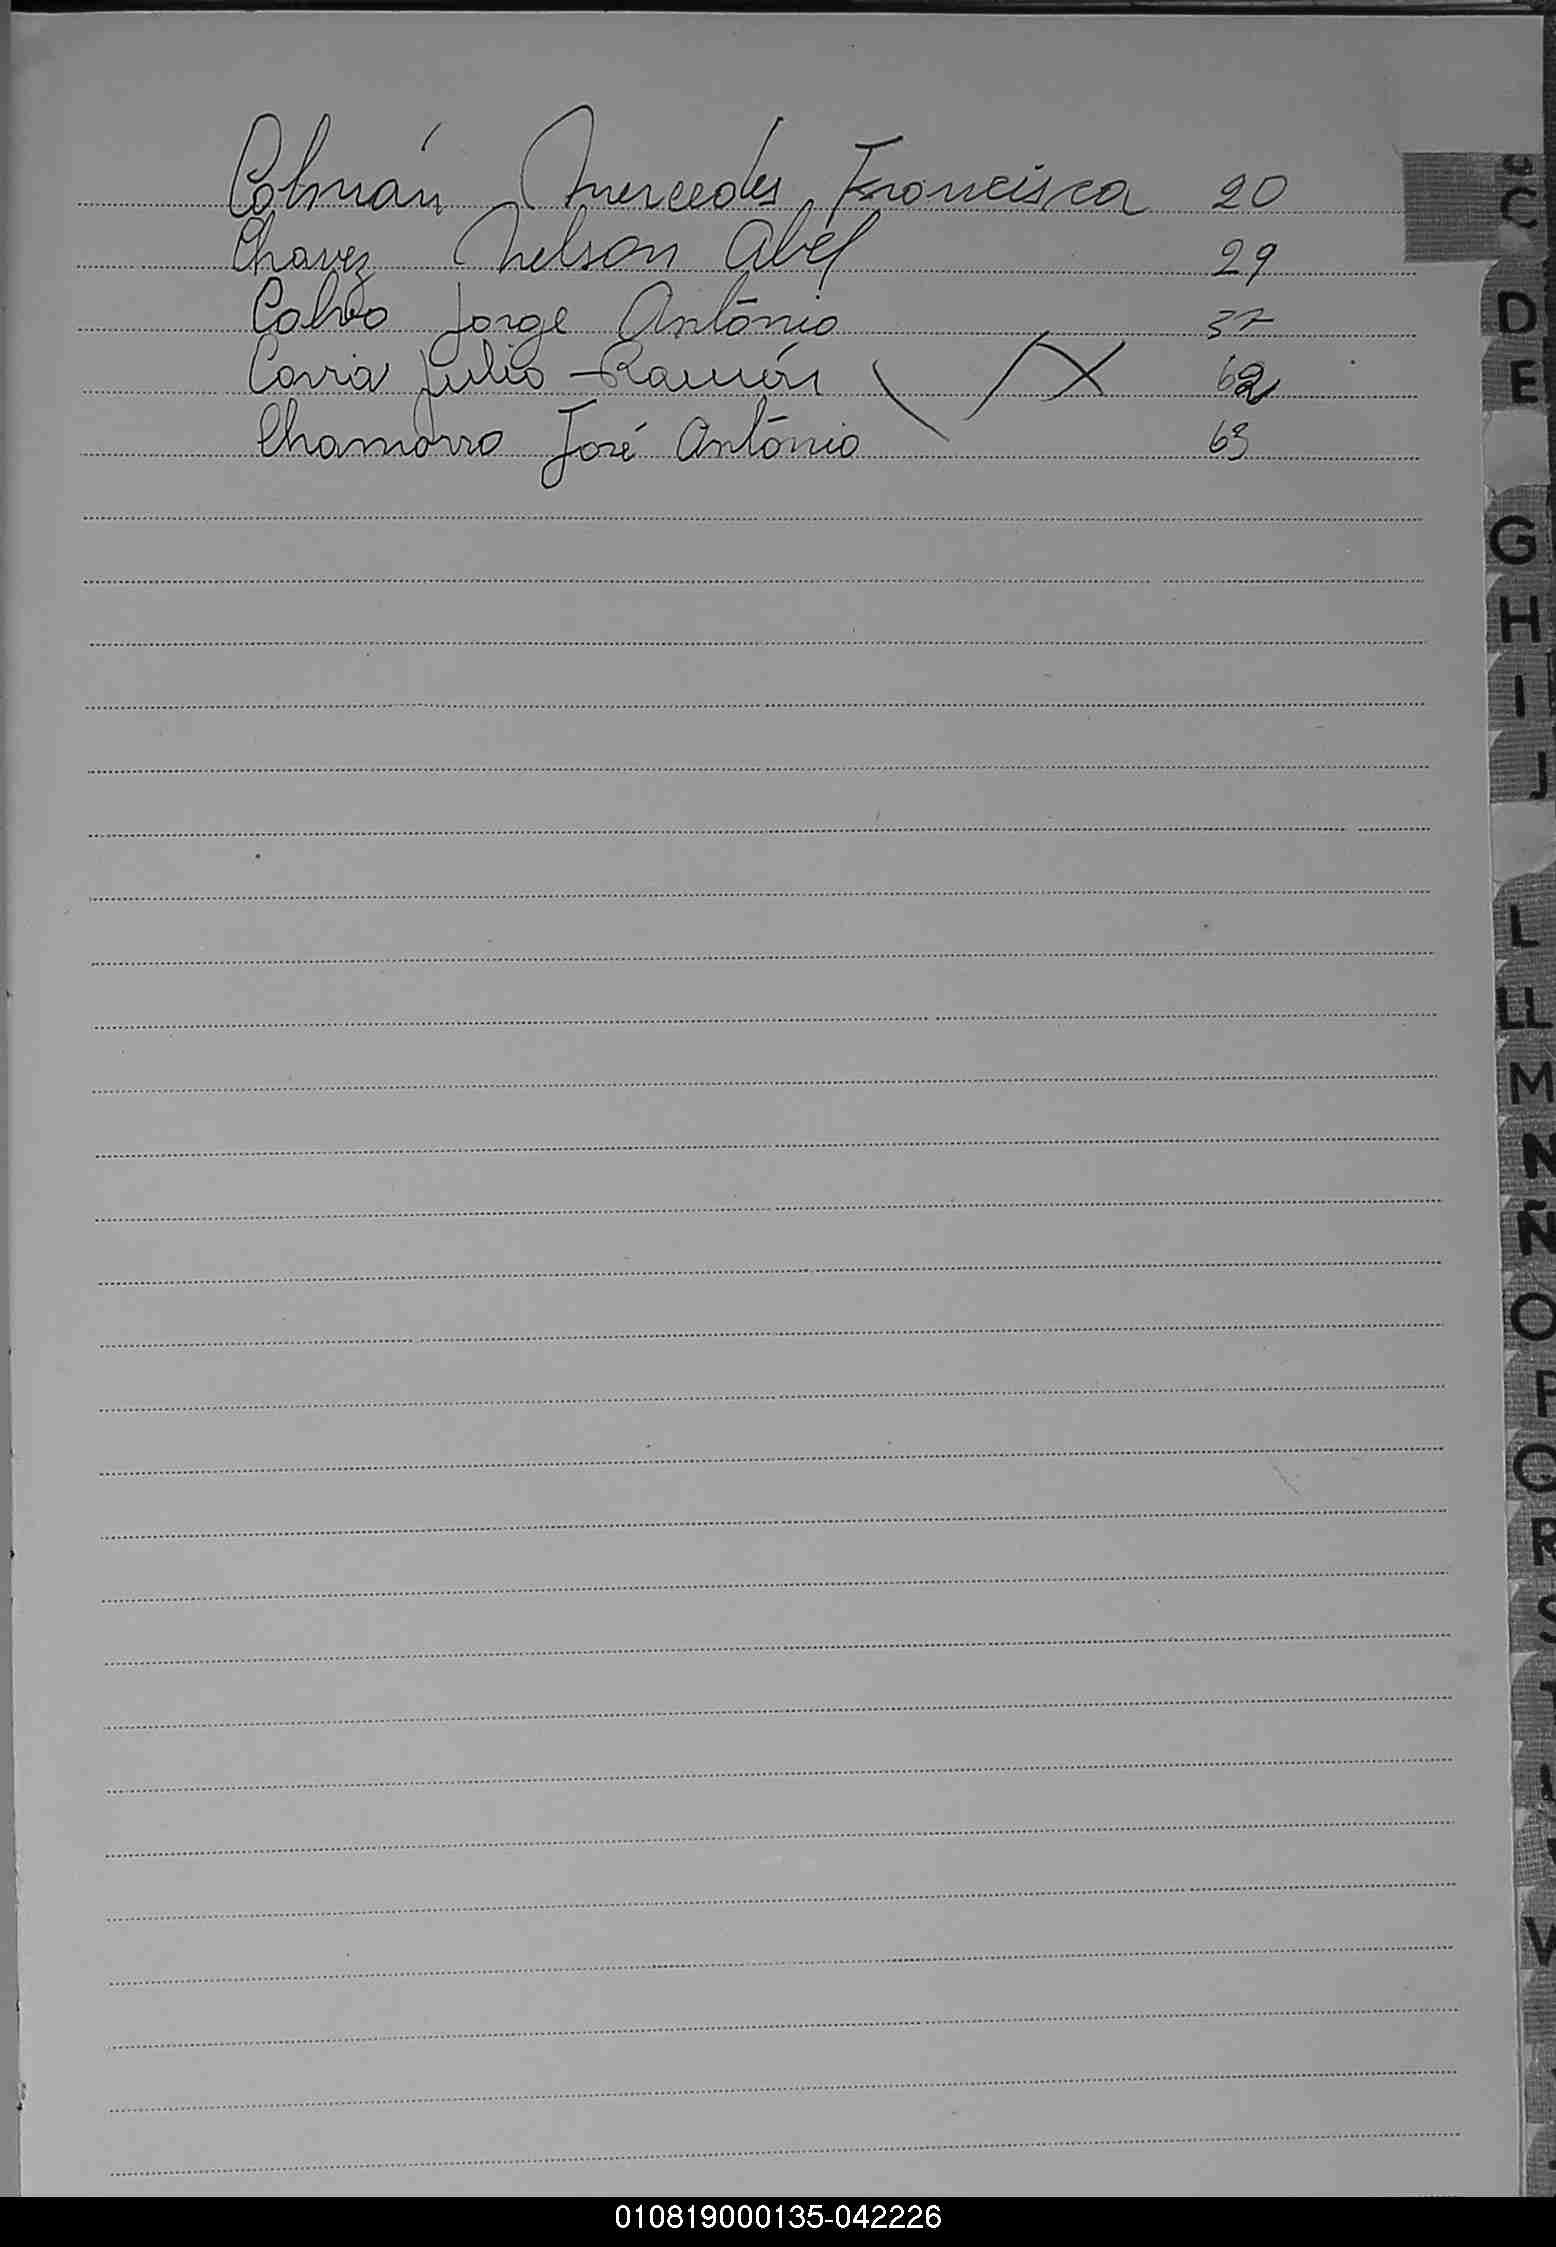 Colmán Mercedes Francisca 20
Chavez Nelson Abel 29
Calvo Jorge António 37
Julio Ramón 62
Chamorro José António 63
C
D
E
G
H
I
J
L
LL
M
N
Ñ
O
P
Q
R
S
V
010819000135-042226